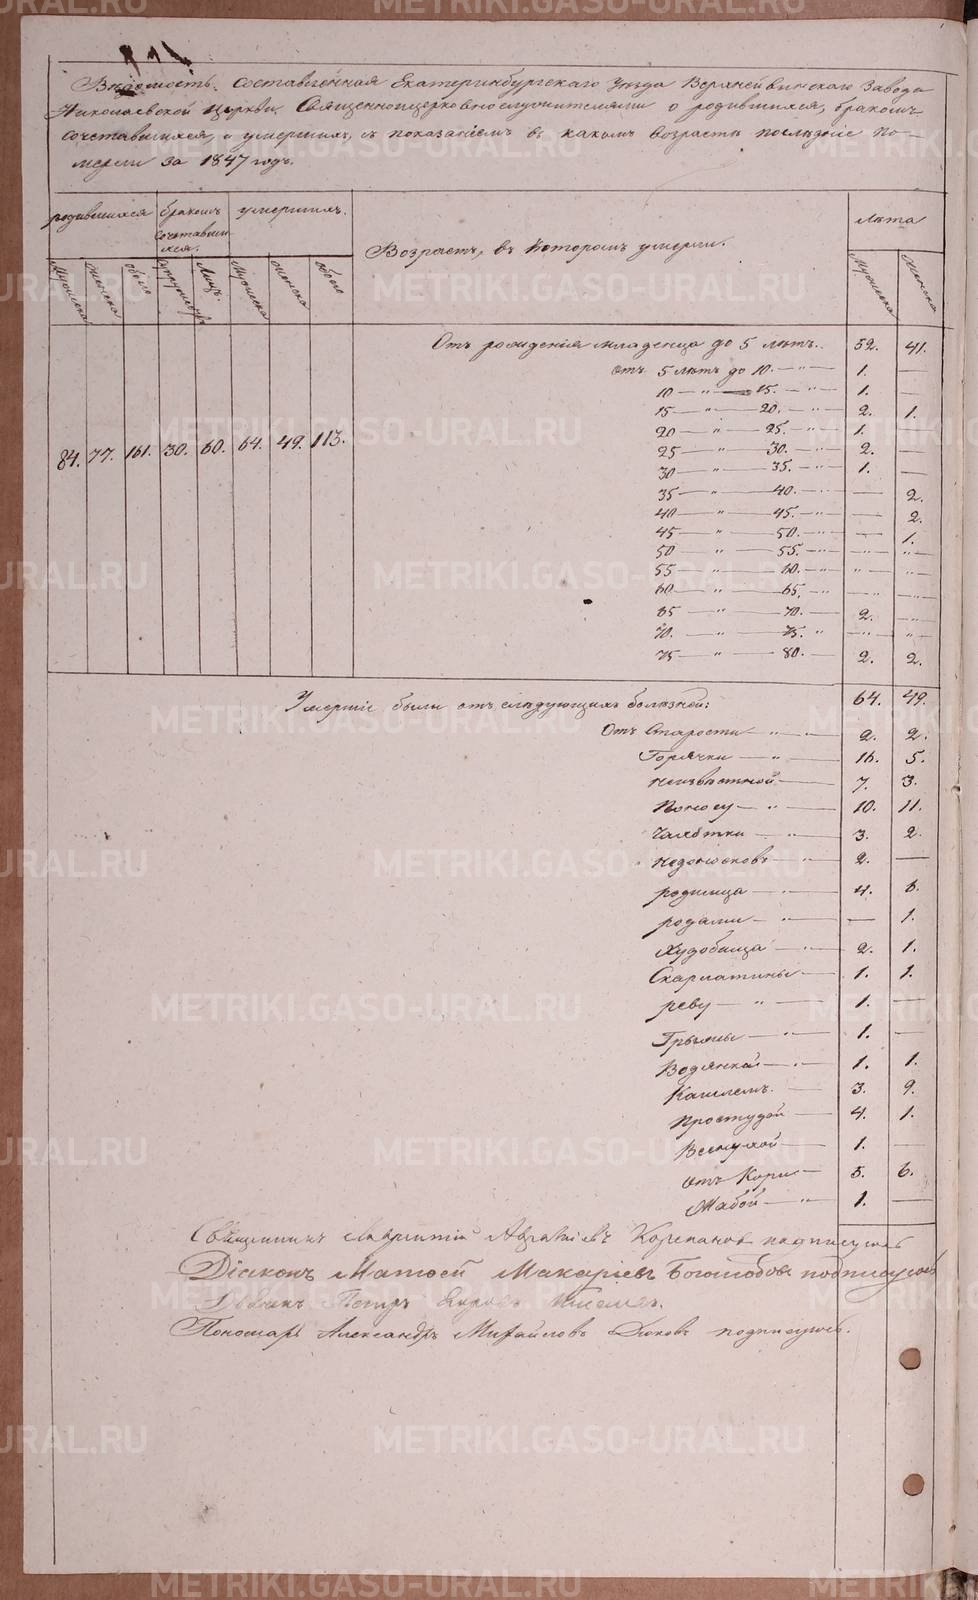 Ведомость. Составленная Екатеринбургскаго Уезда Верхнейвинскаго Завода
Николаевской Церкви Священноцерковнослужителями о родившихся, бракомъ
сочетавшихся, и умершихъ, съ показаніемъ въ какомъ возрасте последніе по-
мерли за 1847 годъ.
родившихся бракомъ сочетавшихся. умершихъ. Возрастъ, въ которомъ умерли. Лета
Мужеска женска обоего супружествъ Лицъ. Мужеска женска обоего Мужеска Женска
84. 77. 161. 30. 60. 64. 49. 113.
Отъ рожденія младенца до 5 летъ. 52. 41.
отъ 5 летъ до 10. — " — 1. —
10 — " — 15. — " — 1. —
15 — " — 20. — " 2. 1.
20 — " — 25. — " — 1. —
25 — " — 30. — " — 2. —
30 — " — 35. — " — 1. —
35 — " — 40. — " — — 2.
40 — " — 45. — " — — 2.
45 — " — 50. — " — — 1.
50 — " — 55. — " — — " — — " —
55 — " — 60. — " — " — " —
60 — " — 65. — " — " — — " —
65 — " — 70. — 2. — " —
70. — " — 75. " — " — — " —
75 — " — 80. — 2. 2.
64. 49.
Умершіе были отъ следующихъ болезней:
Отъ Старости — " — 2. 2.
Горячки — " — 16. 5.
неизвестной — 7. 3.
Поносу — " — 10. 11.
Чахотки — " — 3. 2.
недоносковъ — " — 2. —
родимца — " — 4. 6.
родами — " — — 1.
Худобища — " — 2. 1.
Скарлатины — 1. 1.
реву — " — 1. —
Грыжи — " — 1. —
Водянкой — " — 1. 1.
Кашлемъ. — 3. 9.
Простудой — 4. 1.
1. —
отъ Кори — 5. 6.
Жабой — " — 1. —
Священникъ Лаврентій Корепановъ подписуюсь
Діаконъ Матвей Макаріевъ Боголюбовъ подписуюсь
Петръ
Пономарь Александръ Михайловъ подписуюсь.
METRIKI.GASO-URAL.RU